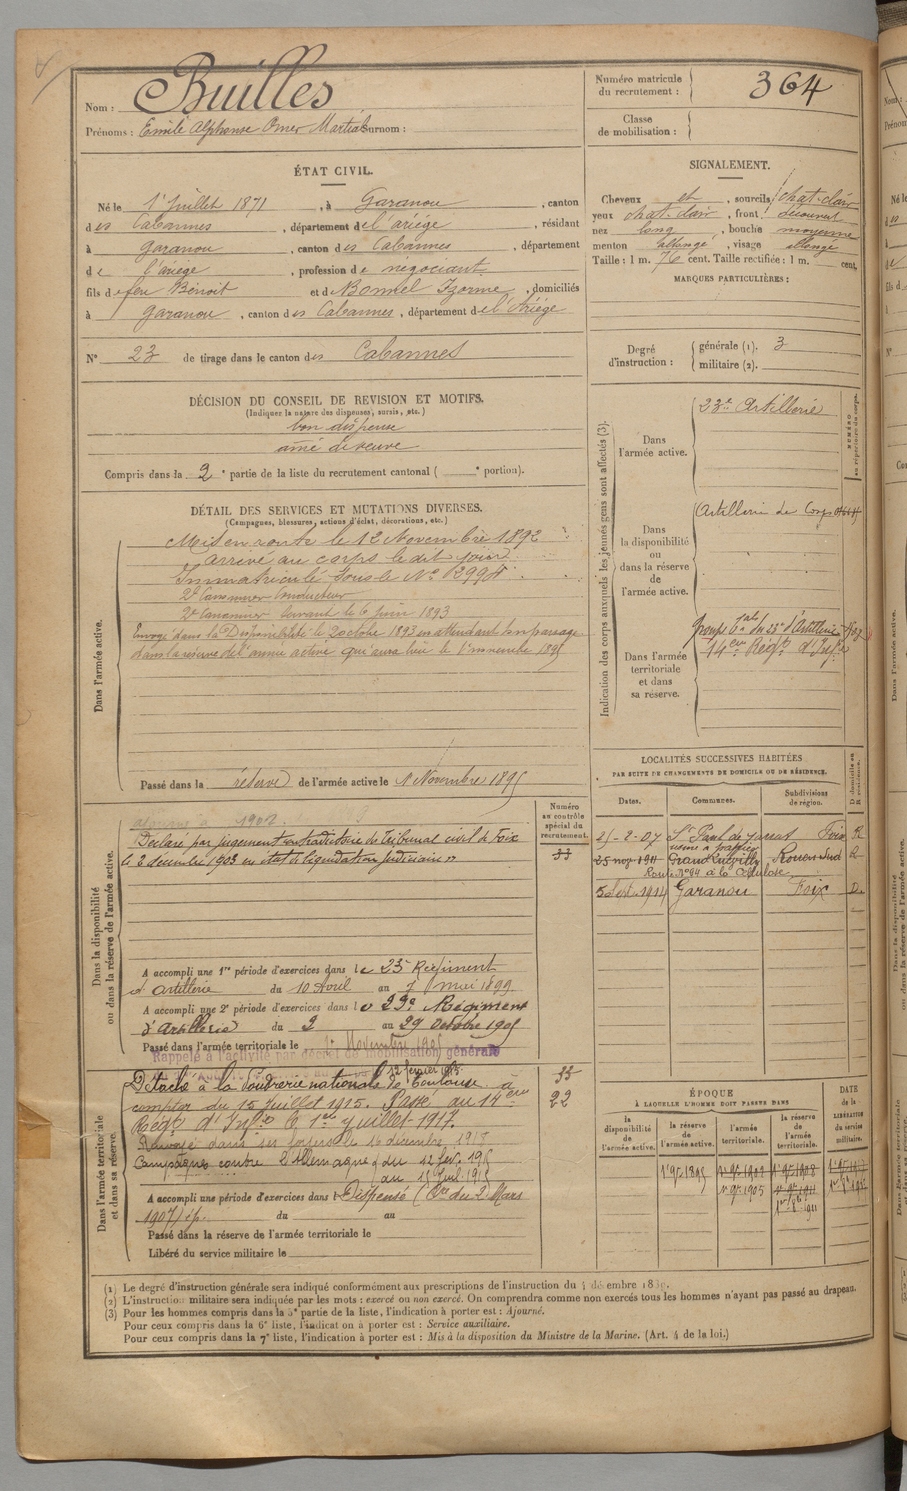 Nom : Builles
Prénoms : Emile Alphonse Omer Martial Surnom :
Numéro matricule du recrutement : 364
Classe de mobilisation :
ÉTAT CIVIL.
Né le 1r Juillet 1871, à Garanou, canton
des Cabannes, département de l'ariége, résidant
à Garanou, canton des Cabannes, département
de l'ariege, profession de négociant
fils de feu Bénoit et de Bonnel Izorme, domiciliés
à Garanou, canton des Cabannes, département de l'Ariége
N° 23 de tirage dans le canton des Cabannes
SIGNALEMENT.
Cheveux et, sourcils chat-clair
yeux chat-clair, front découvert
nez long, bouche moyenne
menton allongé, visage allongé
Taille : 1 m. 76 cent. Taille rectifiée : 1 m. cent.
MARQUES PARTICULIÈRES :
Degré d'instruction : générale (1). 3
militaire (2).
DÉCISION DU CONSEIL DE REVISION ET MOTIFS.
(Indiquer la nature des dispenses, sursis, etc.)
bon dispensé
ainé de veuve
Compris dans la 2e partie de la liste du recrutement cantonal ( e portion).
DÉTAIL DES SERVICES ET MUTATIONS DIVERSES.
(Campagnes, blessures, actions d'éclat, décorations, etc.)
Dans l'armée active.
Mis en route le 12 Novembre 1892
arrivé au corps le dit jour
Immatriculé sous le N°
2e Canonnier Conducteur
2e Canonnier Servant le 6 Juin 1893
Envoyé dans la Disponibilité le 20 octobre 1893 en attendant son passage
dans la réserve de l'armée active qui aura lieu le 1r novembre 1895
Passé dans la réserve de l'armée active le 1 Novembre 1895
Indication des corps auxquels les jeunes gens sont affectés (3).
NUMÉRO au répertoire du corps.
Dans l'armée active.
23e Artillerie
Dans la disponibilité ou dans la réserve de l'armée active.
Artillerie de Corps
Dans l'armée territoriale et dans sa réserve.
Groupe du 23e d'Artillerie
14ème Régt d'Infie
LOCALITÉS SUCCESSIVES HABITÉES
PAR SUITE DE CHANGEMENTS DE DOMICILE OU DE RÉSIDENCE.
Dates. Communes. Subdivisions de région. D domicile ou R résidence.
25-2-07 St Paul de Jarrat Foix R
usine à papier
25 nov 1911 Grand Quévilly Rouen-Sud R
Route n° 94 à la Cellulose
5 Sept 1914 Garanou Foix D
Dans la disponibilité ou dans la réserve de l'armée active.
Numéro au contrôle spécial du recrutement.
33
Déclaré par jugement contradictoire du Tribunal civil de Foix
le 2 décembre 1903 en état de liquidation judiciaire
A accompli une 1re période d'exercices dans le 23e Régiment
d'artillerie du 10 Avril au 7 mai 1899
A accompli une 2e période d'exercices dans le 23e Régiment
d'Artillerie du 2 au 29 Octobre 1905
Passé dans l'armée territoriale le 1r Novembre 1905
Rappelé à l'activité par décret de mobilisation générale
12 février 1915
Dans l'armée territoriale et dans sa réserve.
33
22
Détaché à la Poudrerie nationale de Toulouse à
compter du 15 Juillet 1915. Passé au 14ème
Régt d'Infie le 1er Juillet 1917.
Renvoyé dans ses foyers le 10 décembre 1917
Campagnes contre l'Allemagne du 12 fév. 1915
au 15 Juil. 1915
A accompli une période d'exercices dans l Dispensé (Cre du 2 Mars
1907) ép. du au
Passé dans la réserve de l'armée territoriale le
Libéré du service militaire le
ÉPOQUE
À LAQUELLE L'HOMME DOIT PASSER DANS
la disponibilité de l'armée active. la réserve de l'armée active. l'armée territoriale. la réserve de l'armée territoriale. DATE de la LIBÉRATION du service militaire.
1r 9e 1895 1r 9e 1902 1r 9e 1908
1r 9e 1905 1r 9e 1911
(1) Le degré d'instruction générale sera indiqué conformément aux prescriptions de l'instruction du 4 décembre 1889.
(2) L'instruction militaire sera indiquée par les mots : exercé ou non exercé. On comprendra comme non exercés tous les hommes n'ayant pas passé au drapeau.
(3) Pour les hommes compris dans la 5e partie de la liste, l'indication à porter est : Ajourné.
Pour ceux compris dans la 6e liste, l'indication à porter est : Service auxiliaire.
Pour ceux compris dans la 7e liste, l'indication à porter est : Mis à la disposition du Ministre de la Marine. (Art. 4 de la loi.)